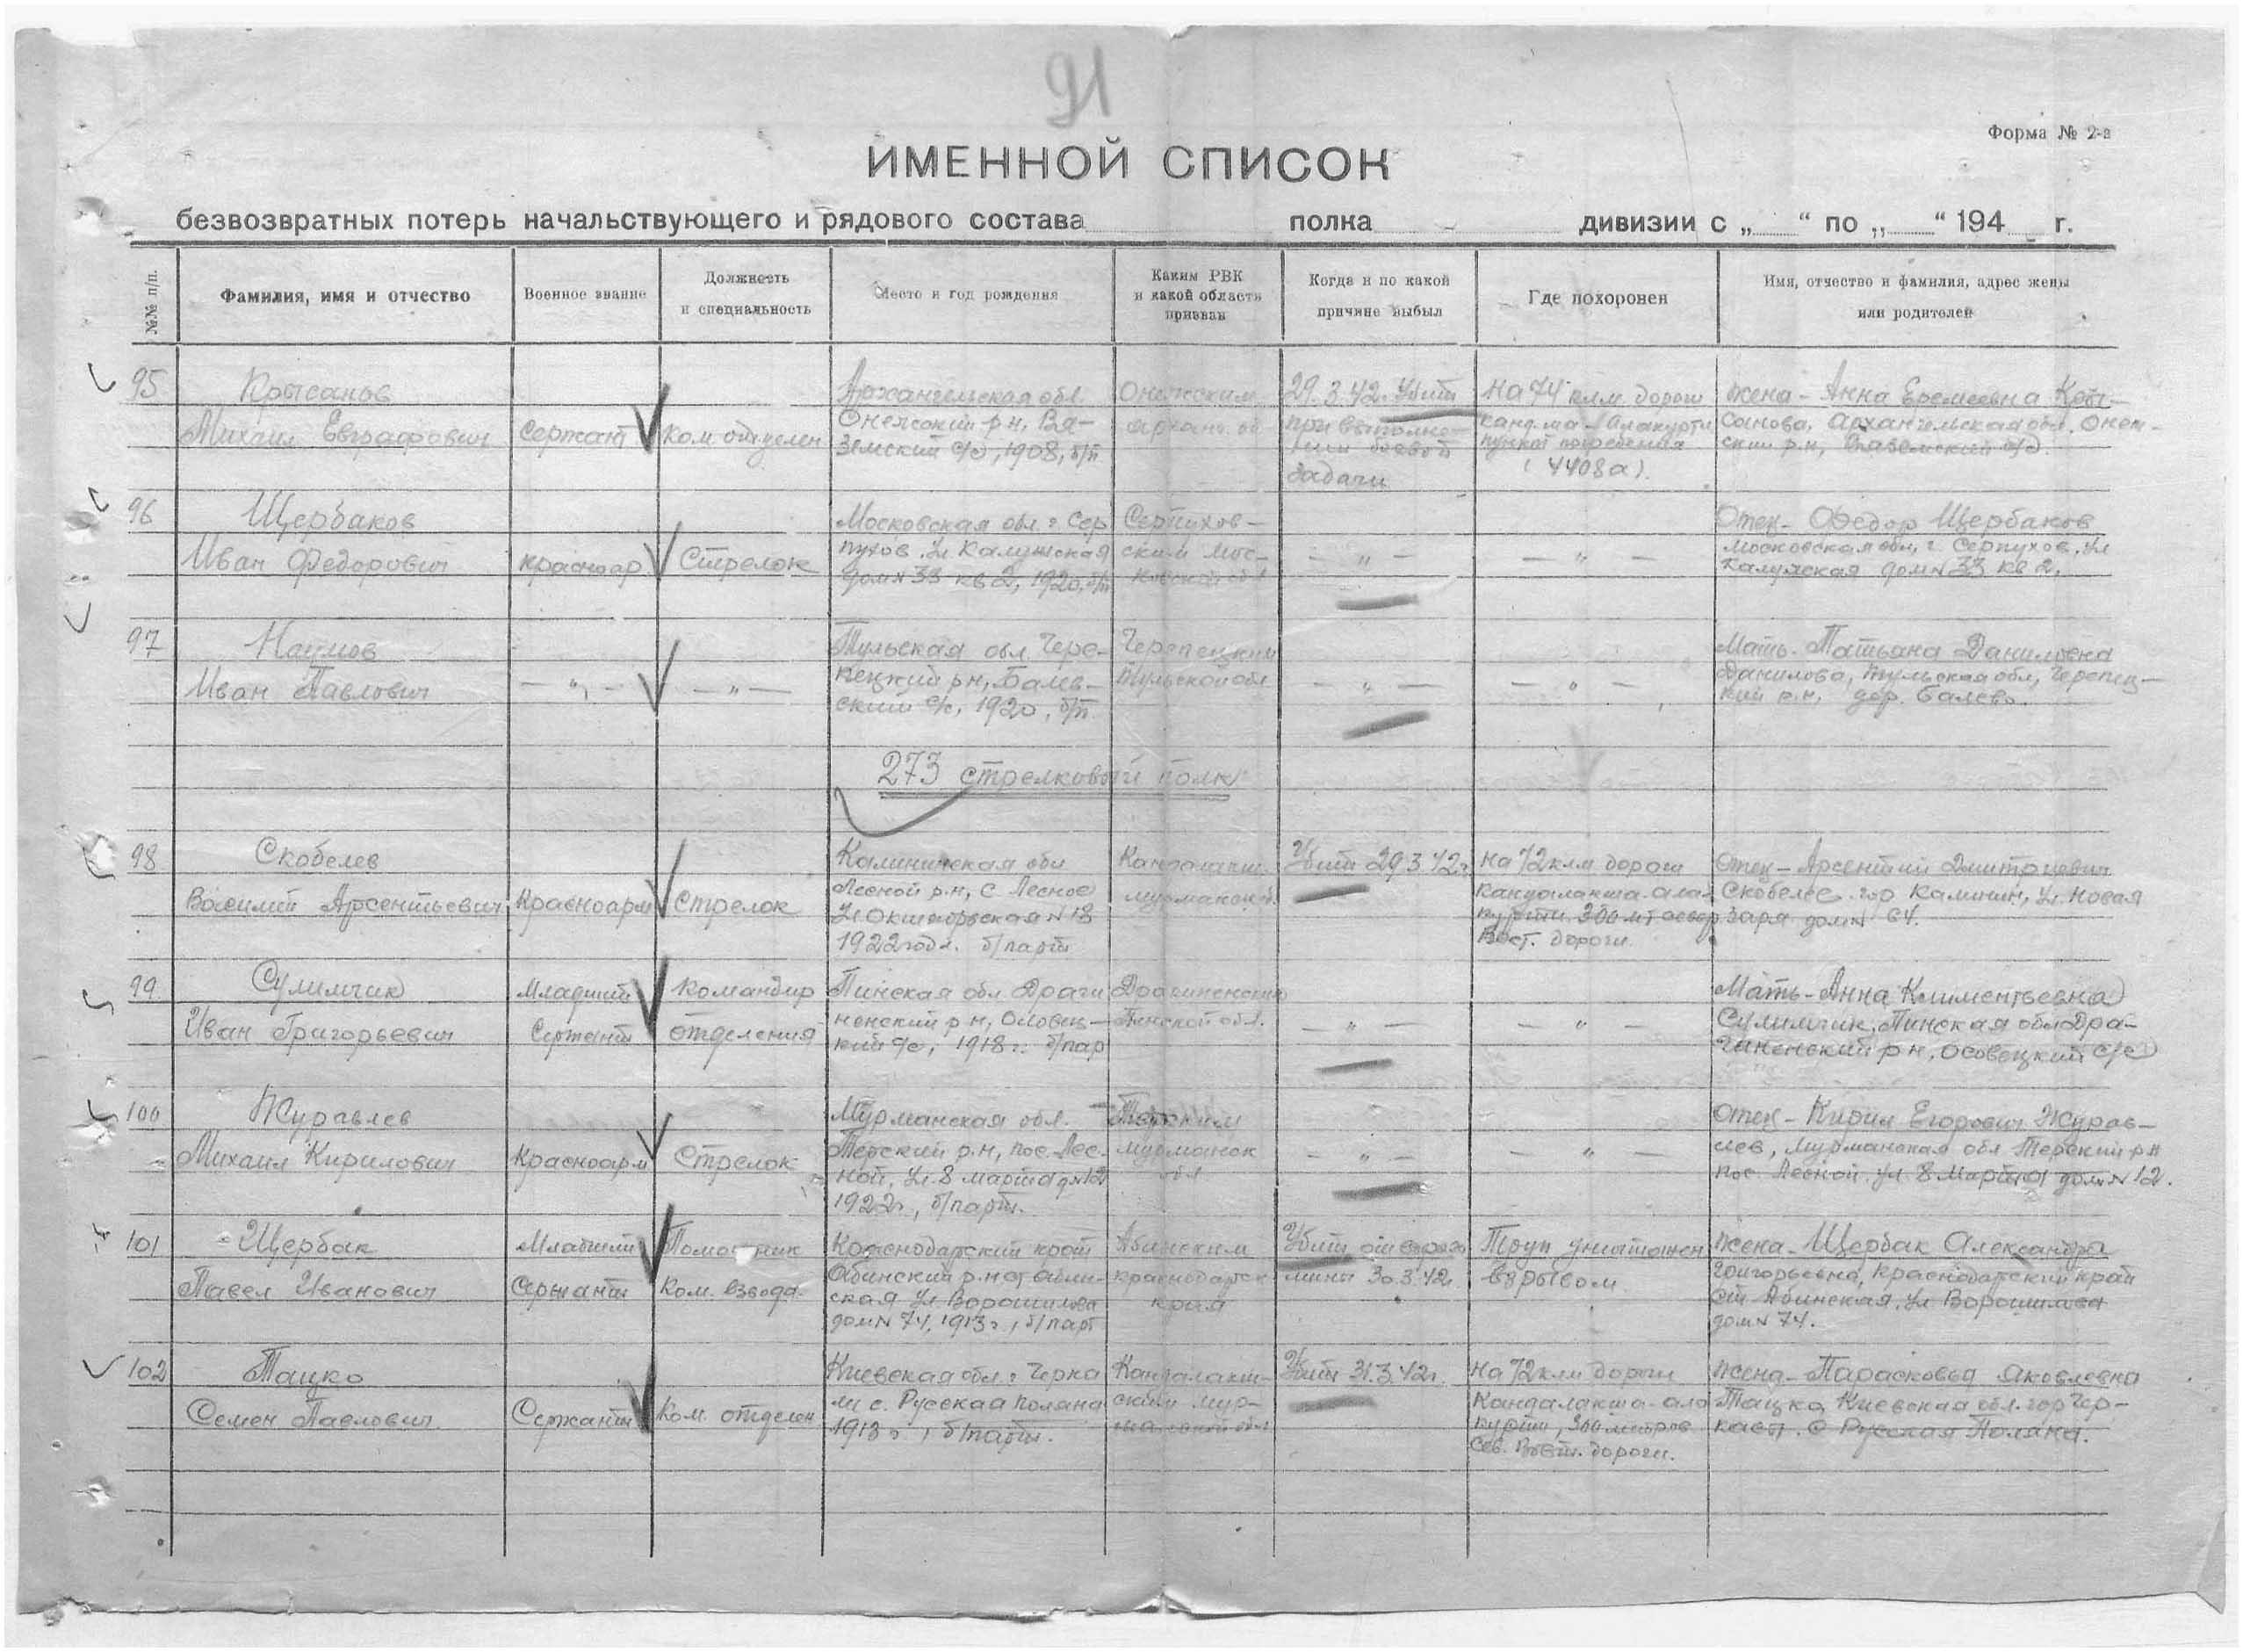 91
Форма № 2-а
ИМЕННОЙ СПИСОК
безвозвратных потерь начальствующего и рядового состава полка дивизии с „ “ по „ “ 194 г.
№№ п/п.
Фамилия, имя и отчество
Военное звание
Должность
и специальность
Место и год рождения
Каким РВК
и какой области
призван
Когда и по какой
причине выбыл
Где похоронен
Имя, отчество и фамилия, адрес жены
или родителей
95
Крысанов
Михаил Евграфович
Сержант
Ком. отделен
Архангельская обл.
Онежский р-н, Вя-
земский с/с, 1908, б/п
Онежским
29.3.42. Убит
при выполне-
нии боевой
задачи
На 74 клм. дороги
Алакурти
пункт погребения
(4408а).
жена - Анна Еремеевна
Архангельская обл, Онеж-
ский р-н,
96
Щербаков
Иван Федорович
Красноар
Стрелок
Московская обл. г. Сер
пухов. ул Калужская
дом № 33 кв 2, 1920, б/п
Серпухов-
ским Мос-
ковской обл
— " —
— " —
Отец - Федор Щербаков
Московская обл, г. Серпухов, ул
Калужская дом № 33 кв 2,
97
Наумов
Иван Павлович
— " —
— " —
Тульская обл. Чере-
пецкий р-н,
ский с/с, 1920, б/п.
Черепецким
Тульской обл
— " —
— " —
Мать - Татьана Даниловна
Данилова, Тульская обл, Черепец-
кий р.н, дер. Балево.
273 стрелковый полк
98
Скобелев
Василий Арсентьевич
Красноарм
Стрелок
Калининская обл
Лесной р-н, с Лесное
ул Октябрьская № 18
1922 год. б/парт
Кандалакш.
Убит 29.3.42г.
На 72 клм дороги
Кандалакша-Ала-
куртти 300 мт север
Вост. дороги.
Отец - Арсентий Дмитриевич
Скобелев. гор Калинин, ул. Новая
Заря дом № 64.
99
Сулимчик
Иван Григорьевич
Младший
Сержант
Командир
отделения
Пинская обл Драги
ненский р-н, Осовец-
кий с/с, 1918 г. б/пар
Драгиненским
Пинской обл.
— " —
— " —
Мать - Анна Климентьевна
Сулимчик, Пинская обл Дра-
гиненский р-н, Осовецкий с/с
100
Журавлев
Михаил Кирилович
Красноарм
Стрелок
Мурманская обл.
Терский р-н, пос. Лес-
ной, ул. 8 марта д № 12
1922г, б/парт.
Терским
Мурманск
обл
— " —
— " —
Отец - Кирил Егорович Журав-
лев, Мурманская обл Терский р-н
пос. Лесной ул 8 Марта дом № 12.
101
Щербак
Павел Иванович
Младший
Сержант
Ком. взвода
Краснодарский край
Абинский р-н ст Абин-
ская ул. Ворошилова
дом № 74, 1913г, б/парт
Абинским
Краснодарск
края
Убит
мины 30.3.42г.
Труп уничтожен
взрывом.
жена - Щербак Александра
Григорьевна, Краснодарский край
ст Абинская, ул Ворошилова
дом № 74.
102
Тацко
Семен Павлович
Сержант
Ком. отделен
Киевская обл. г. Черка
сы с. Русская поляна
1913 г, б/парт.
Кандалакш-
ским Мур-
манской обл
Убит 31.3.42г.
На 72 клм дороги
Кандалакша-Ала
куртти, 300 метров
Сев. Вост. дороги.
жена - Парасковья Яковлевна
Тацко Киевская обл. гор Чер-
касы. с Русская Поляна.